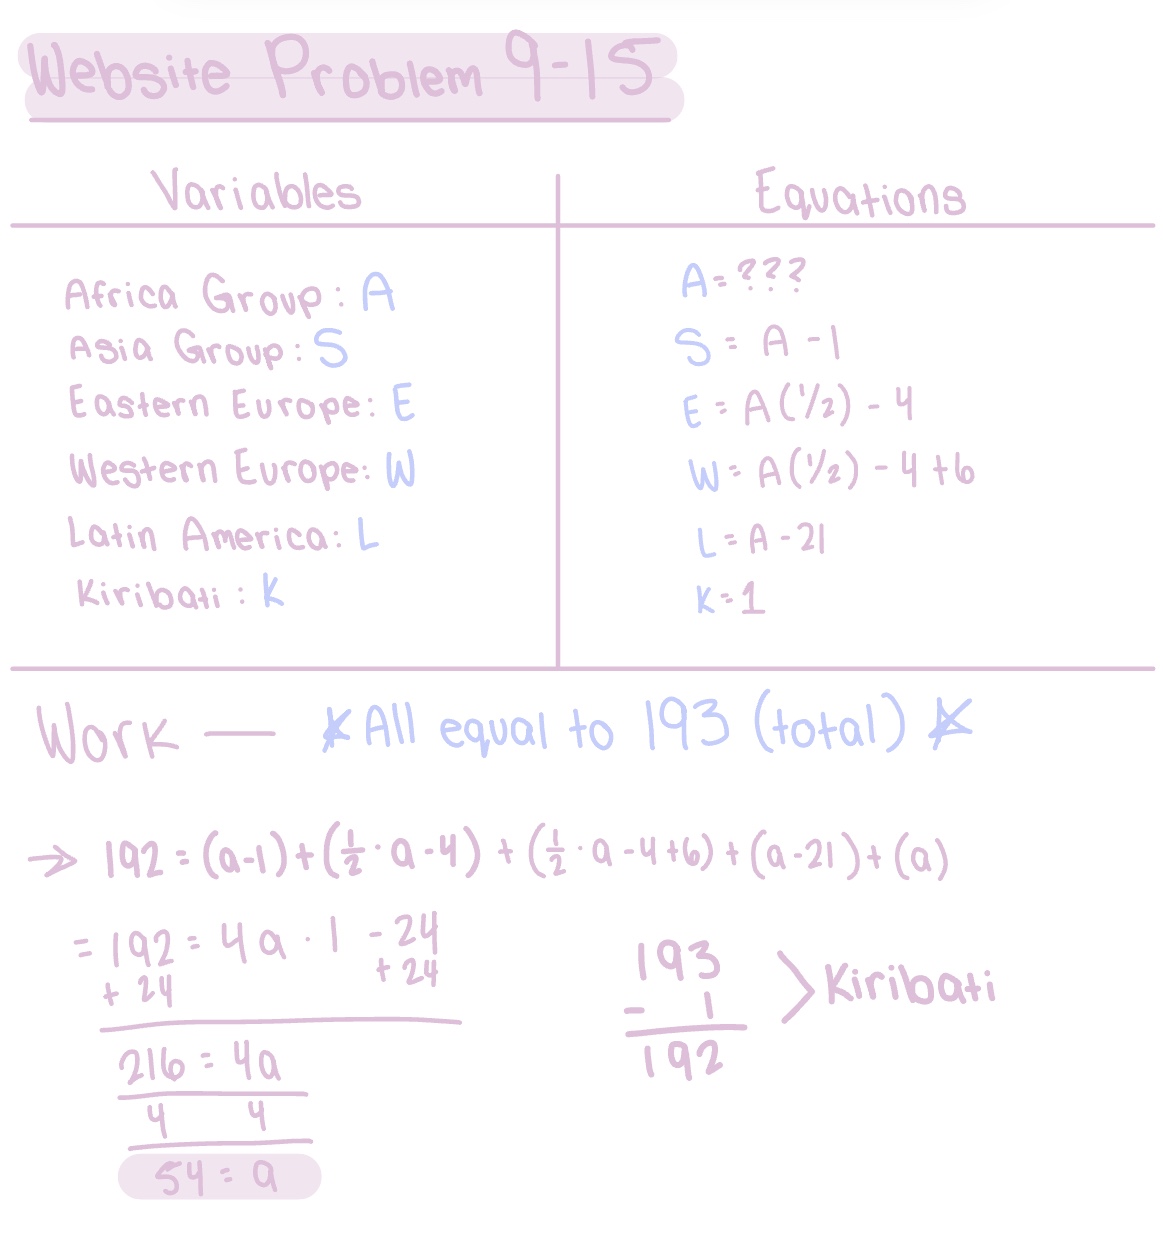 Website Problem 9-15
Variables
Africa Group: A
Asia Group: S
Eastern Europe: E
Western Europe: W
Latin America: L
Kiribati: K
Equations
A = ???
S = A - 1
E = A(1/2) - 4
W = A(1/2) - 4 + 6
L = A - 21
K = 1
Work — *All equal to 193 (total)*
→ 192 = (a-1) + (1/2 · a - 4) + (1/2 · a - 4 + 6) + (a - 21) + (a)
= 192 = 4a · 1 - 24
+ 24 + 24
216 = 4a
4 4
54 = a
193
- 1
192
> Kiribati